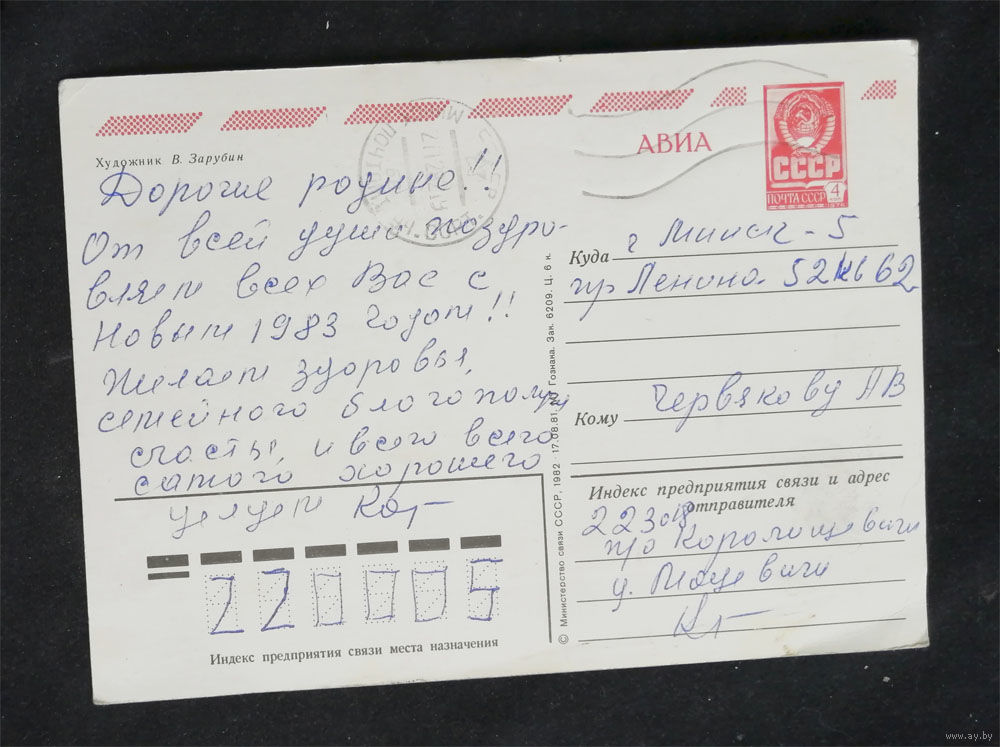 Художник В. Зарубин
Дорогие родные!!
От всей души поздра-
вляем всех Вас с
Новым 1983 годом!!
Желаем здоровья,
семейного благополучия
счастья, и всего всего
самого хорошего
целуем
22 5
Индекс предприятия связи места назначения
© Министерство связи СССР, 1982 17.08.81. Гознака. Зак. 6209. Ц. 6 к.
АВИА
СССР
ПОЧТА СССР 4
Куда г Минск - 5
пр Ленина 52 кв 62
Кому Червякову АВ
Индекс предприятия связи и адрес
отправителя
п/о Королищевичи
Мацевичи
www.ay.by